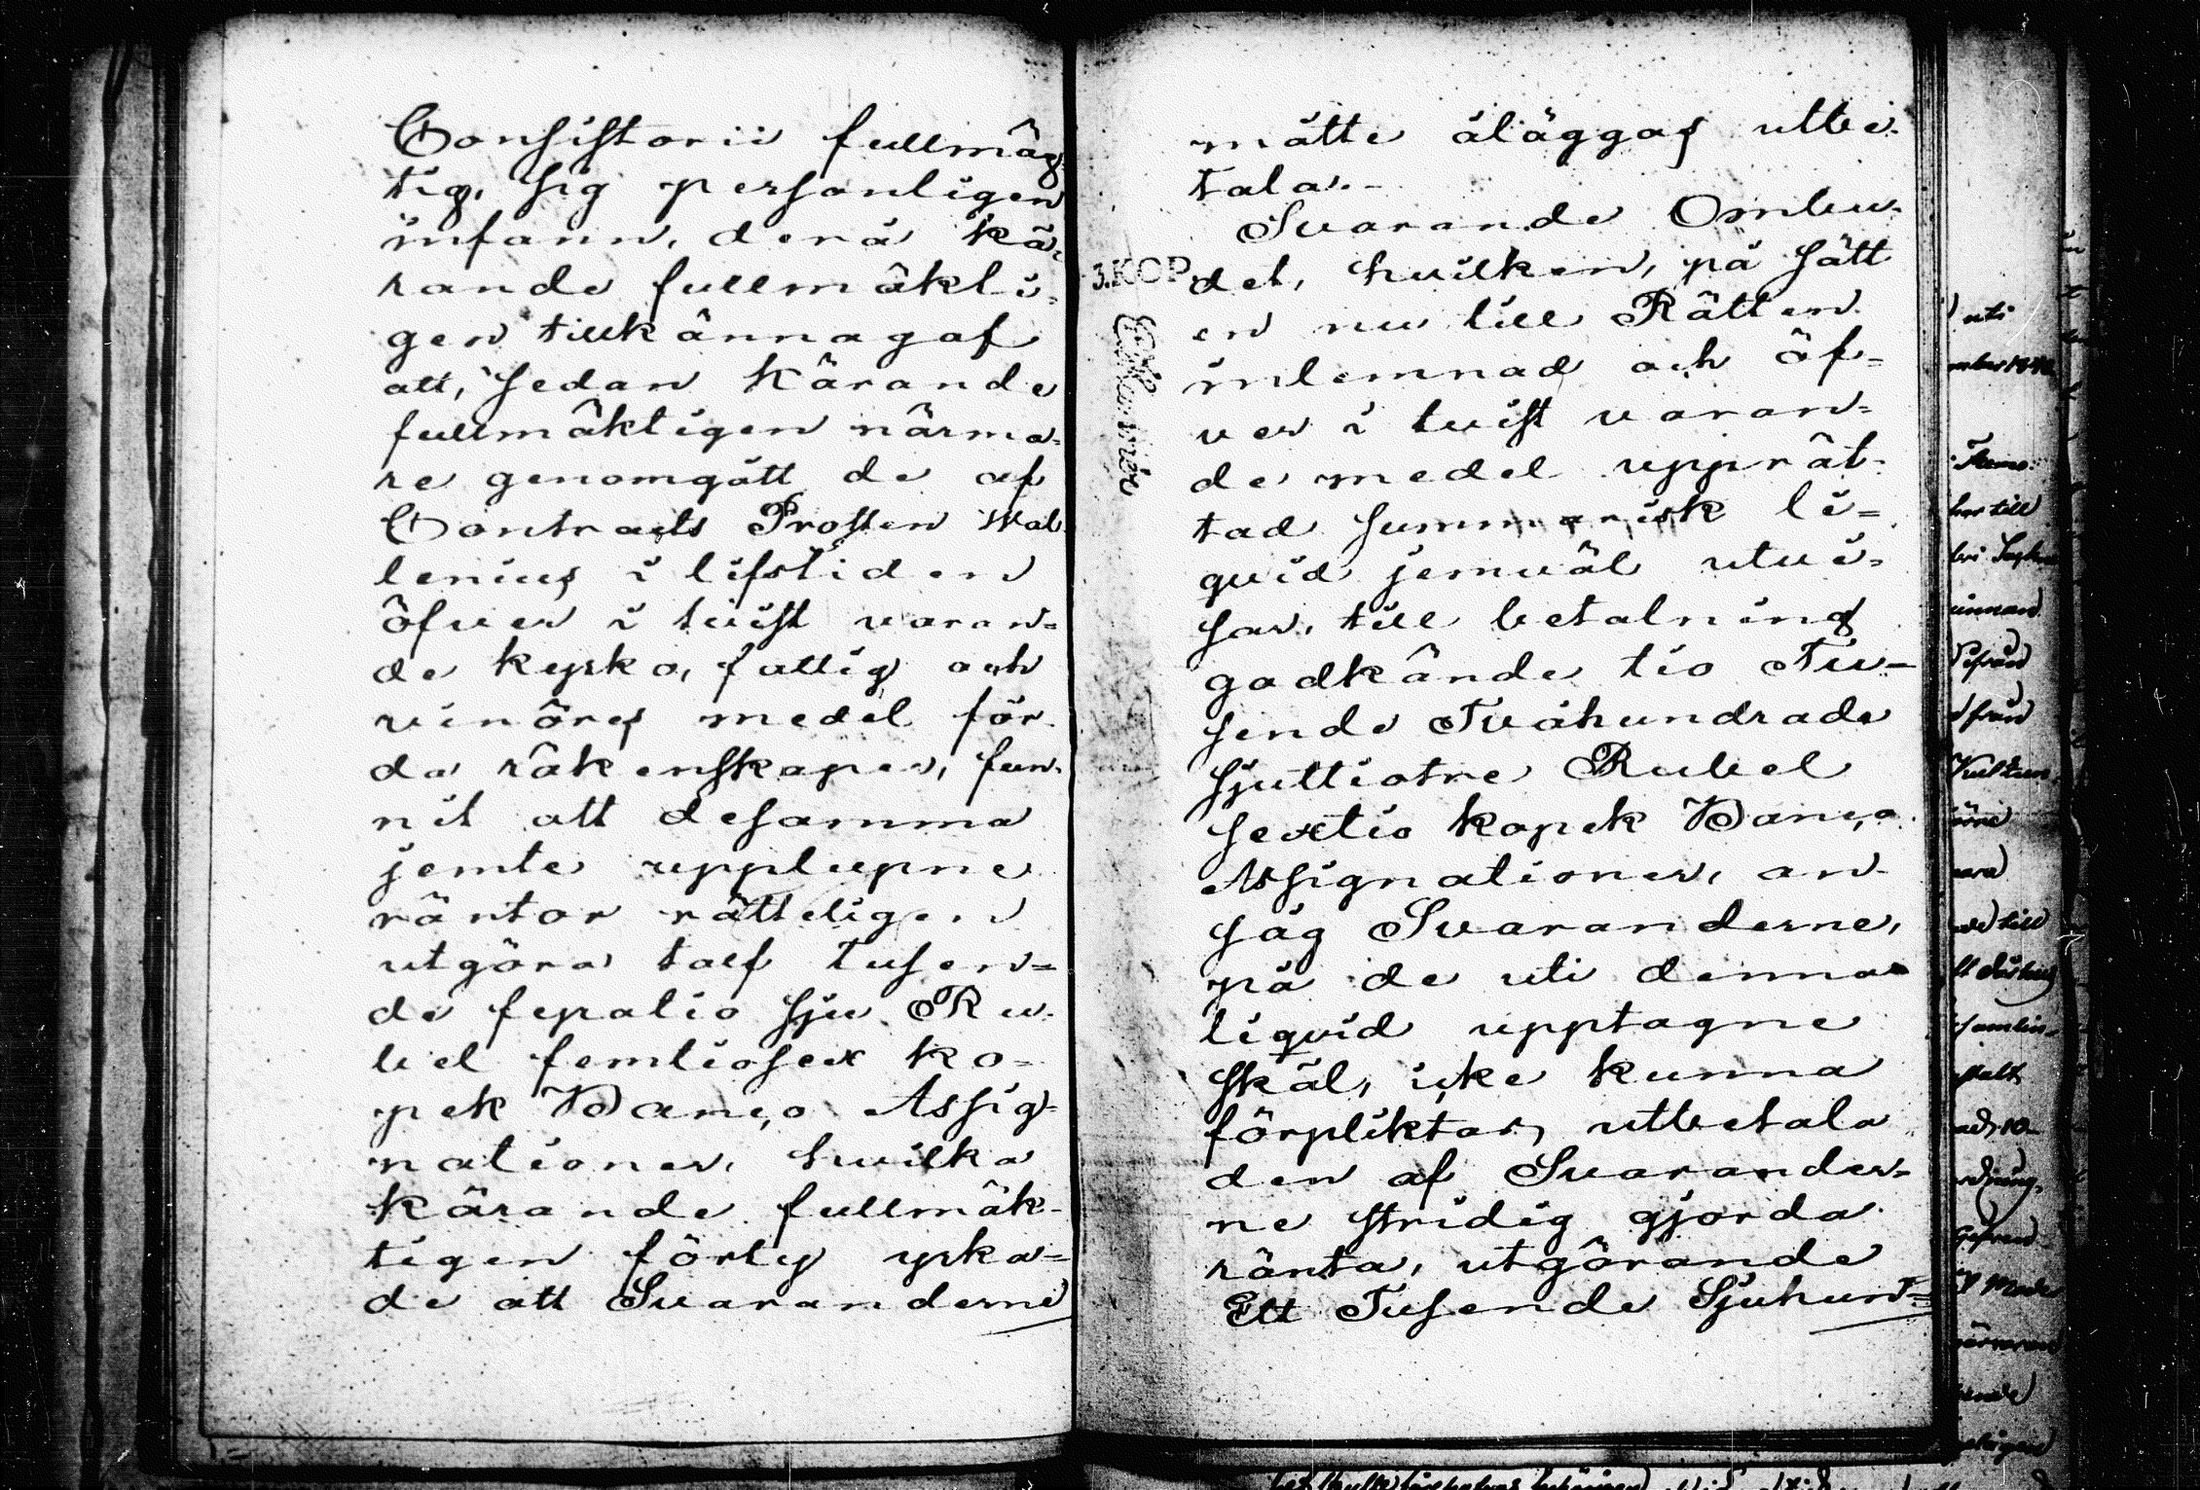 Consistorii fullmäg
tig, sig personligen
infann, derå kä-
rande fullmäkti-
gen tillkännagaf
att, sedan Kärande
fullmäktigen närma-
re genomgått de af
Contracts Prosten Wal
lenius i lifstiden
öfver i tvist varan-
de kyrko, fattig och
vinöres medel för-
da räkenskaper, fun-
nit att desamma
jemte upplupne
räntor rätteligen
utgöra tolf tusen-
de fyratio sju Ru-
bel femtiosex ko-
pek Banco Assig-
nationer, hvilka
kärande fullmäk-
tigen förty yrka-
de att Svaranderne
måtte åläggas utbe-
tala.-
Svarande Ombu-
det, hvilken, på sätt
en nu till Rätten
inlemnad och öf-
ver i tvist varan-
de medel upprät-
tad summarisk li-
qvid jemväl utvi-
sar, till betalning
godkände tio Tu-
sende Tvåhundrade
sjuttiotre Rubel
sextio kopek Banco
Assignationer, an-
såg Svaranderne,
på de uti denna
liqvid upptagne
skäl, icke kunna
förpliktas utbetala
den af Svarander-
ne stridig gjorda
ränta, utgörande
Ett Tusende Sjuhun-
3.KOP.
uti
till
innan
från
till